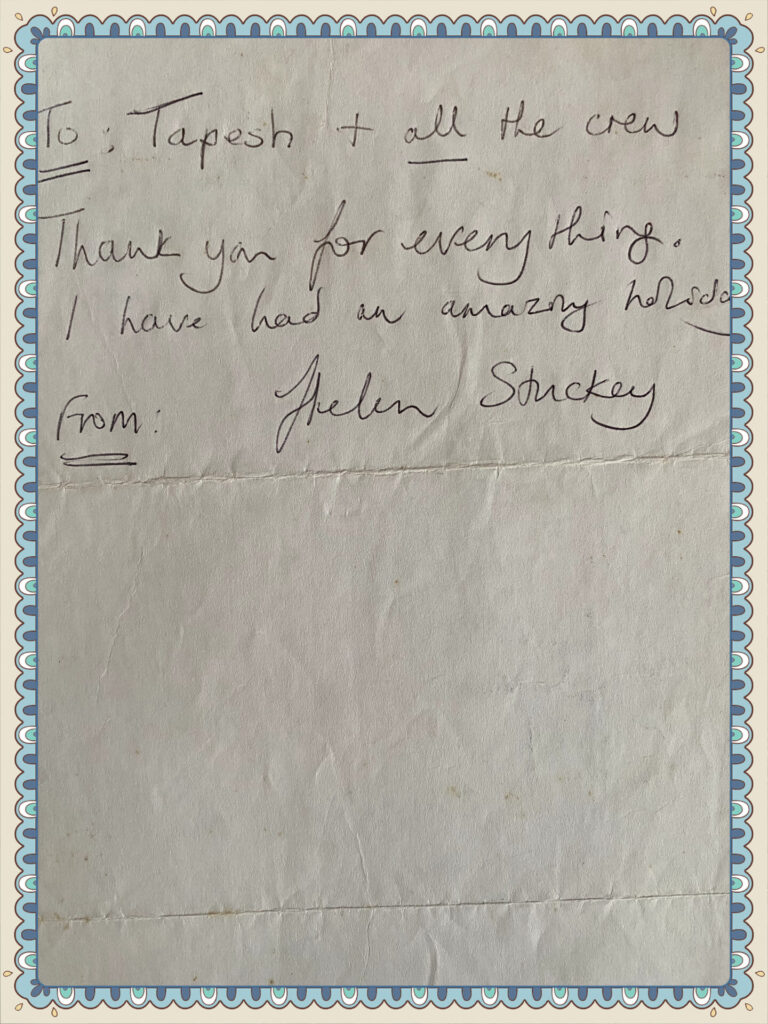 To: Tapesh + all the crew
Thank you for everything.
I have had an amazing holiday
From: Helen Stuckey